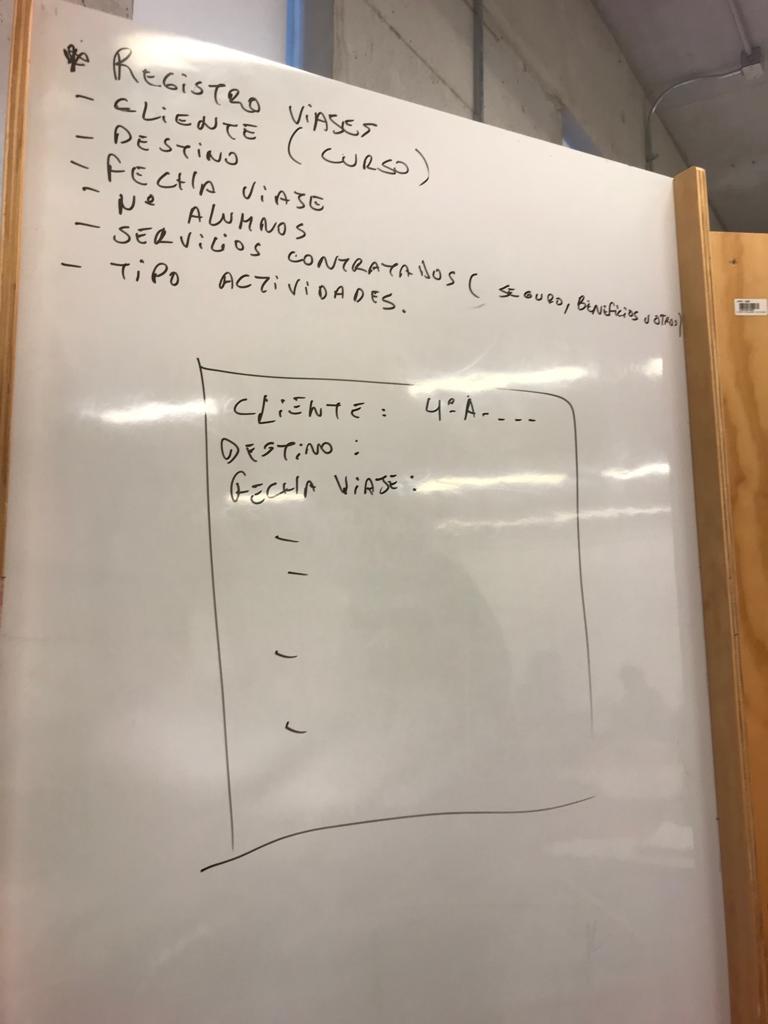 * REGISTRO VIAJES
- CLIENTE (CURSO)
- DESTINO
- FECHA VIAJE
- Nº ALUMNOS
- SERVICIOS CONTRATADOS (SEGURO, BENEFICIOS U OTROS)
- TIPO ACTIVIDADES.
CLIENTE: 4ºA----
DESTINO:
FECHA VIAJE:
-
-
-
-